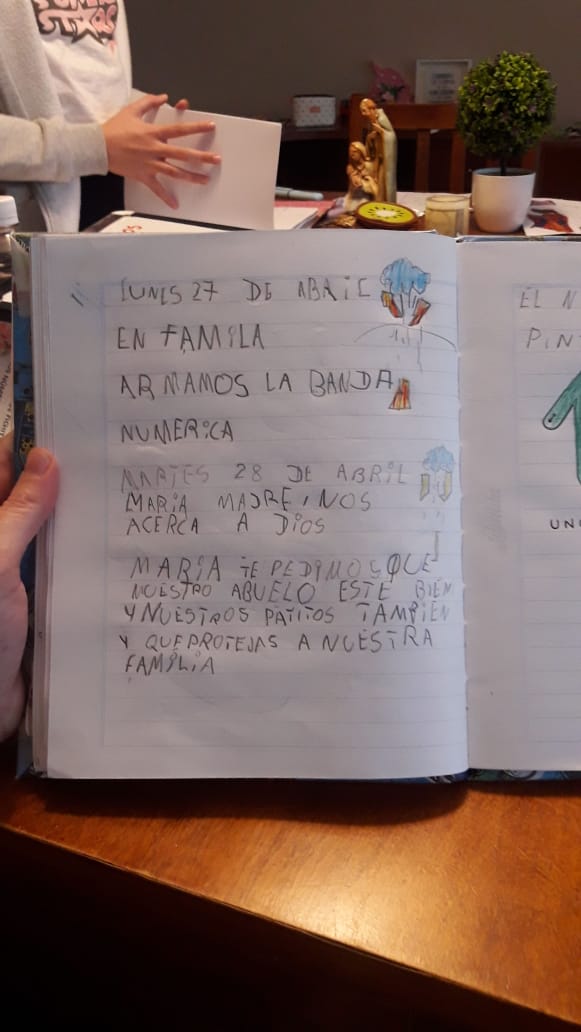 LUNES 27 DE ABRIL
EN FAMILA
ARMAMOS LA BANDA
NUMERICA
MARTES 28 DE ABRIL
MARIA MADRE NOS
ACERCA A DIOS
MARIA TE PEDIMOS QUE
NUESTRO ABUELO ESTE BIEN
Y NUESTROS PATITOS TAMBIEN
Y QUE PROTEJAS A NUESTRA
FAMILIA
EL N
PIN
UN